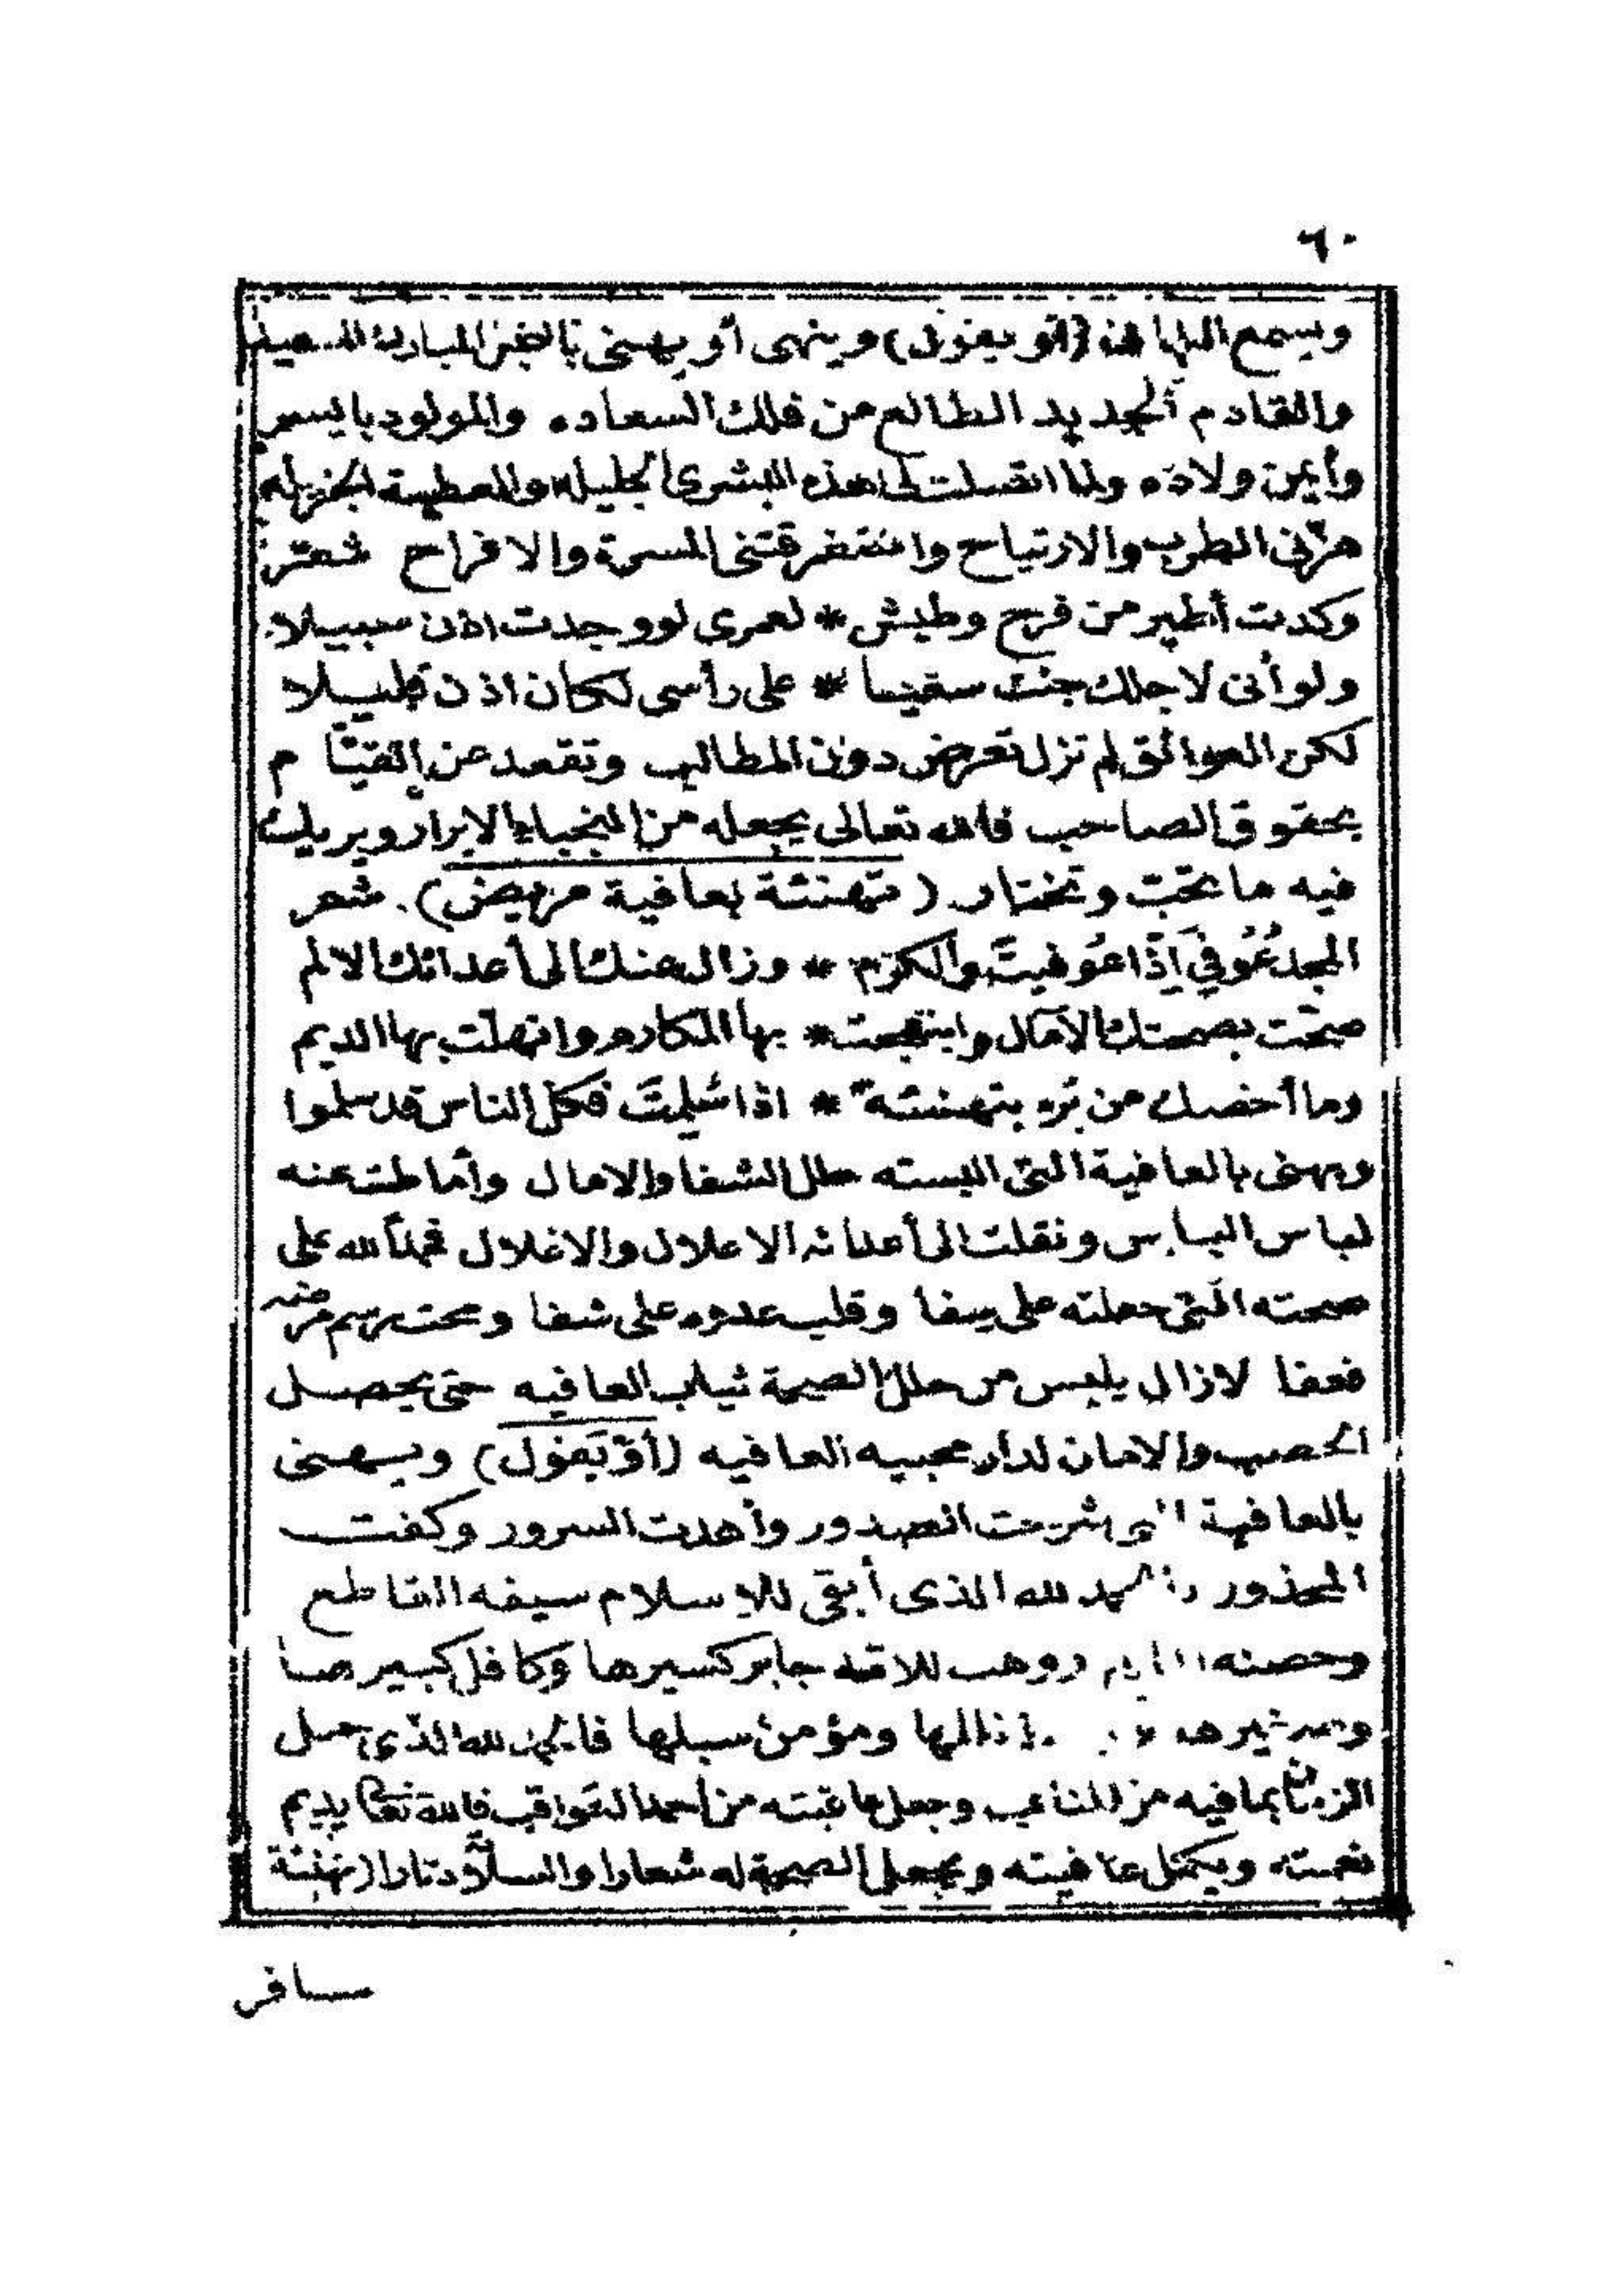 ٦٠
ويسمع (أو يقول) وينهى أو يهنى السعيد
والقادم الجديد الطالع من فلك السعاده والمولود بايسر
وأيمن ولاده ولما اتصلت هذه البشرى الجليله والعطية الجزيله
هزنى الطرب والارتياح والمسرة والافراح شعر
وكدت أطير من فرح وطيش * لعمرى لو وجدت اذن سبيلا
ولو أنى لاجلك جئت سعيا * على رأسى لكان اذن قليلا
لكن العوائق لم تزل تعرض دون المطالب وتقعد عن القيام
بحقوق الصاحب فالله تعالى يجعله من النجباء الابرار ويريك
فيه ما تحب وتختار (تهنئة بعافية مريض) شعر
المجد عُوفِيَ إذا عُوفيتَ والكرم * وزال عنك الى أعدائك الالم
صحت بصحتك الآمال وابتهجت * بها المكارم وانهلت بها الديم
وما أخصك من برء بتهنئة * اذا سلمتَ فكل الناس قد سلموا
ويهنى بالعافية التى البسته حلل الشفا والامال وأماطت عنه
لباس الباس ونقلت الى أعدائه الاعلال والاغلال فحمدا لله على
صحته التى جعلته على شفا وقلب عدوه على شفا ومحت رسم مرضه
فعفا لا زال يلبس من حلل الصحة ثياب العافيه حتى يحصل
الخصب والامان لدار محبيه العافيه (أو يَقول) ويهنى
بالعافية شرحت الصدور وأهدت السرور وكفت
المحذور لله الذى أبقى للاسلام سيفه القاطع
وحصنه ووهب للامة جابر كسيرها وكافل كبيرها
وصغيرها ومؤمن سبلها فالحمد لله الذى
الزمان بما فيه من المتاعب وجعل عاقبته من أحمد العواقب فالله تعالى يديم
نعمته ويكمل عافيته ويجعل الصحة له شعارا والسلامة دثارا (تهنئة
سافر